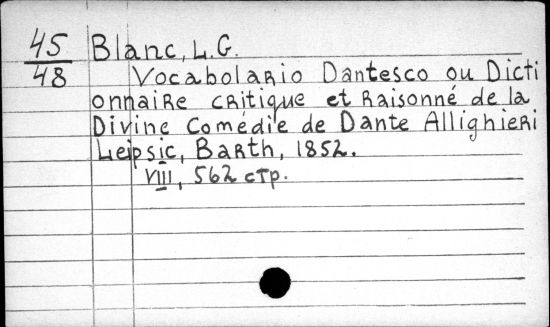 45
48
Blanc, L.G.
Vocabolario Dantesco ou Dicti
onnaire critique et Raisonné de la
Divine Comédie de Dante Allighieri
Leipsic, Barth, 1852.
VIII, 562 стр.